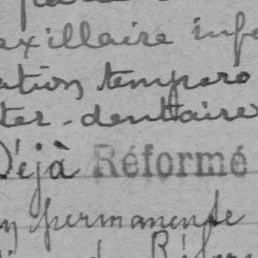 maxillaire infé
ation temporo
ter-dentaire
Déjà Réformé
permanente